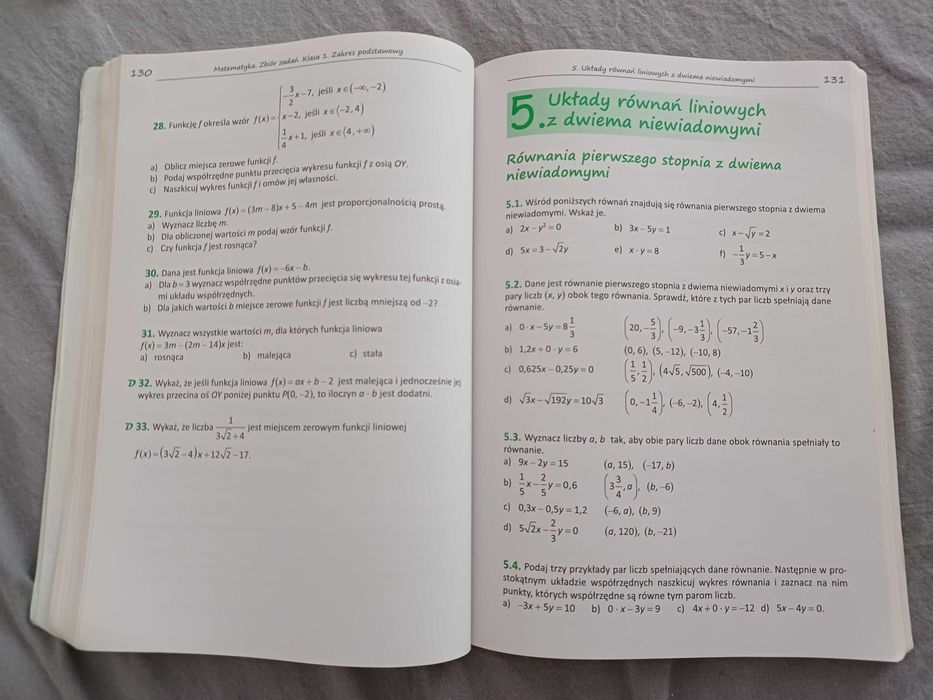 130
Matematyka. Zbiór zadań. Klasa 1. Zakres podstawowy
28. Funkcję f określa wzór f(x) = { -3/2 x – 7, jeśli x ∈ (–∞, –2)
x – 2, jeśli x ∈ ⟨–2, 4)
1/4 x + 1, jeśli x ∈ ⟨4, +∞)
a) Oblicz miejsca zerowe funkcji f.
b) Podaj współrzędne punktu przecięcia wykresu funkcji f z osią OY.
c) Naszkicuj wykres funkcji f i omów jej własności.
29. Funkcja liniowa f(x) = (3m – 8)x + 5 – 4m jest proporcjonalnością prostą.
a) Wyznacz liczbę m.
b) Dla obliczonej wartości m podaj wzór funkcji f.
c) Czy funkcja f jest rosnąca?
30. Dana jest funkcja liniowa f(x) = –6x – b.
a) Dla b = 3 wyznacz współrzędne punktów przecięcia się wykresu tej funkcji z osia-
mi układu współrzędnych.
b) Dla jakich wartości b miejsce zerowe funkcji f jest liczbą mniejszą od –2?
31. Wyznacz wszystkie wartości m, dla których funkcja liniowa
f(x) = 3m – (2m – 14)x jest:
a) rosnąca b) malejąca c) stała
D 32. Wykaż, że jeśli funkcja liniowa f(x) = ax + b – 2 jest malejąca i jednocześnie jej
wykres przecina oś OY poniżej punktu P(0, –2), to iloczyn a · b jest dodatni.
D 33. Wykaż, że liczba 1/(3√2 + 4) jest miejscem zerowym funkcji liniowej
f(x) = (3√2 – 4)x + 12√2 – 17.
5. Układy równań liniowych z dwiema niewiadomymi
131
5. Układy równań liniowych
z dwiema niewiadomymi
Równania pierwszego stopnia z dwiema
niewiadomymi
5.1. Wśród poniższych równań znajdują się równania pierwszego stopnia z dwiema
niewiadomymi. Wskaż je.
a) 2x – y² = 0 b) 3x – 5y = 1 c) x – √y = 2
d) 5x = 3 – √2y e) x · y = 8 f) –1/3 y = 5 – x
5.2. Dane jest równanie pierwszego stopnia z dwiema niewiadomymi x i y oraz trzy
pary liczb (x, y) obok tego równania. Sprawdź, które z tych par liczb spełniają dane
równanie.
a) 0 · x – 5y = 8 1/3 (20, –5/3), (–9, –3 1/3), (–57, –1 2/3)
b) 1,2x + 0 · y = 6 (0, 6), (5, –12), (–10, 8)
c) 0,625x – 0,25y = 0 (1/5, 1/2), (4√5, √500), (–4, –10)
d) √3x – √192y = 10√3 (0, –1 1/4), (–6, –2), (4, 1/2)
5.3. Wyznacz liczby a, b tak, aby obie pary liczb dane obok równania spełniały to
równanie.
a) 9x – 2y = 15 (a, 15), (–17, b)
b) 1/5 x – 2/5 y = 0,6 (3 3/4, a), (b, –6)
c) 0,3x – 0,5y = 1,2 (–6, a), (b, 9)
d) 5√2x – 2/3 y = 0 (a, 120), (b, –21)
5.4. Podaj trzy przykłady par liczb spełniających dane równanie. Następnie w pro-
stokątnym układzie współrzędnych naszkicuj wykres równania i zaznacz na nim
punkty, których współrzędne są równe tym parom liczb.
a) –3x + 5y = 10 b) 0 · x – 3y = 9 c) 4x + 0 · y = –12 d) 5x – 4y = 0.